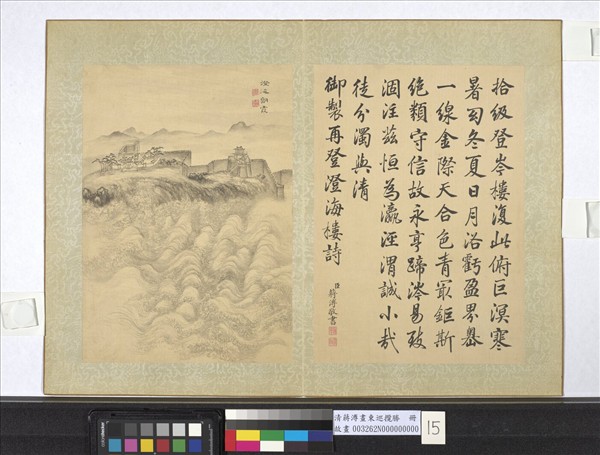 拾級登岑樓復此俯巨溟寒
暑司冬夏日月浴虧盈界晷
一線金際天合色青最鉅斯
絶類守信故永亨蹄涔易致
涸注茲恒為瀛涇渭誠小哉
徒分濁與清
御製再登澄海樓詩
臣蔣溥敬書
清蔣溥畫東巡攬勝 冊
故畫 003262N000000000
15